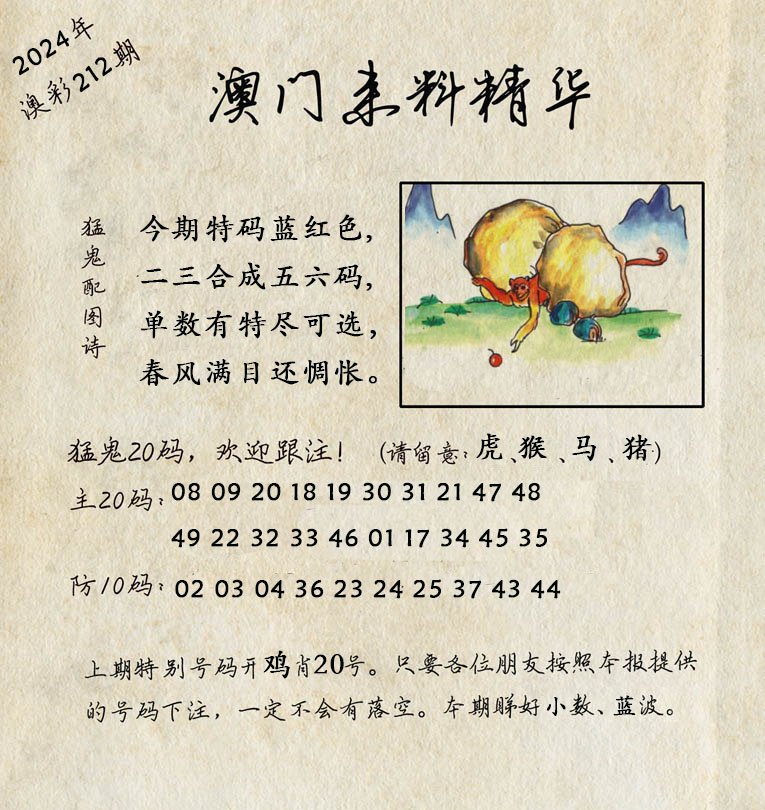 2024年
澳彩212期
澳门来料精华
猛鬼配图诗
今期特码蓝红色，
二三合成五六码，
单数有特尽可选，
春风满目还惆怅。
猛鬼20码，欢迎跟注！（请留意：虎、猴、马、猪）
主20码：08 09 20 18 19 30 31 21 47 48
49 22 32 33 46 01 17 34 45 35
防10码：02 03 04 36 23 24 25 37 43 44
上期特别号码开鸡肖20号。只要各位朋友按照本报提供
的号码下注，一定不会有落空。本期睇好小数、蓝波。